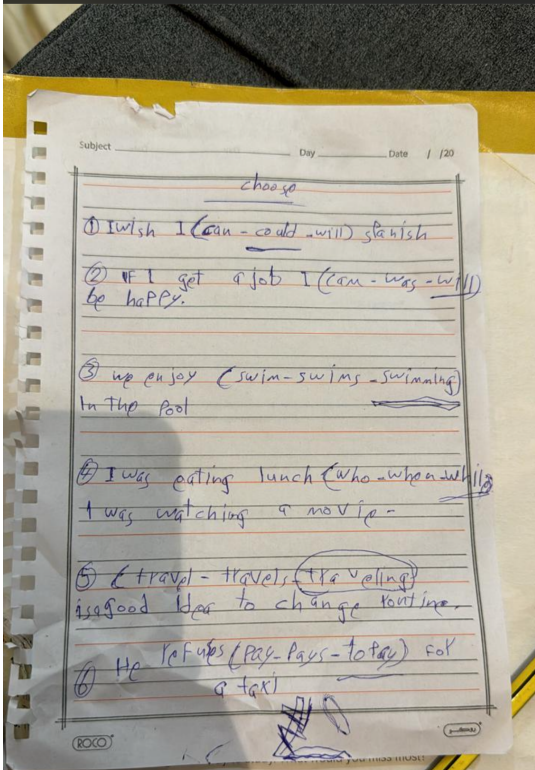 Subject Day Date / /20
choose
① I wish I (can - could - will) spanish
② IF I get a job I (can - was - will)
be happy.
③ we enjoy (swim - swims - swimming)
In The Pool
④ I was eating lunch (who - when - while
I was watching a movie -
⑤ (travel - travels - traveling)
is a good Idea to change routine.
⑥ He refuses (pay - pays - to pay) for
a taxi
ROCO
روكو
would you miss most?